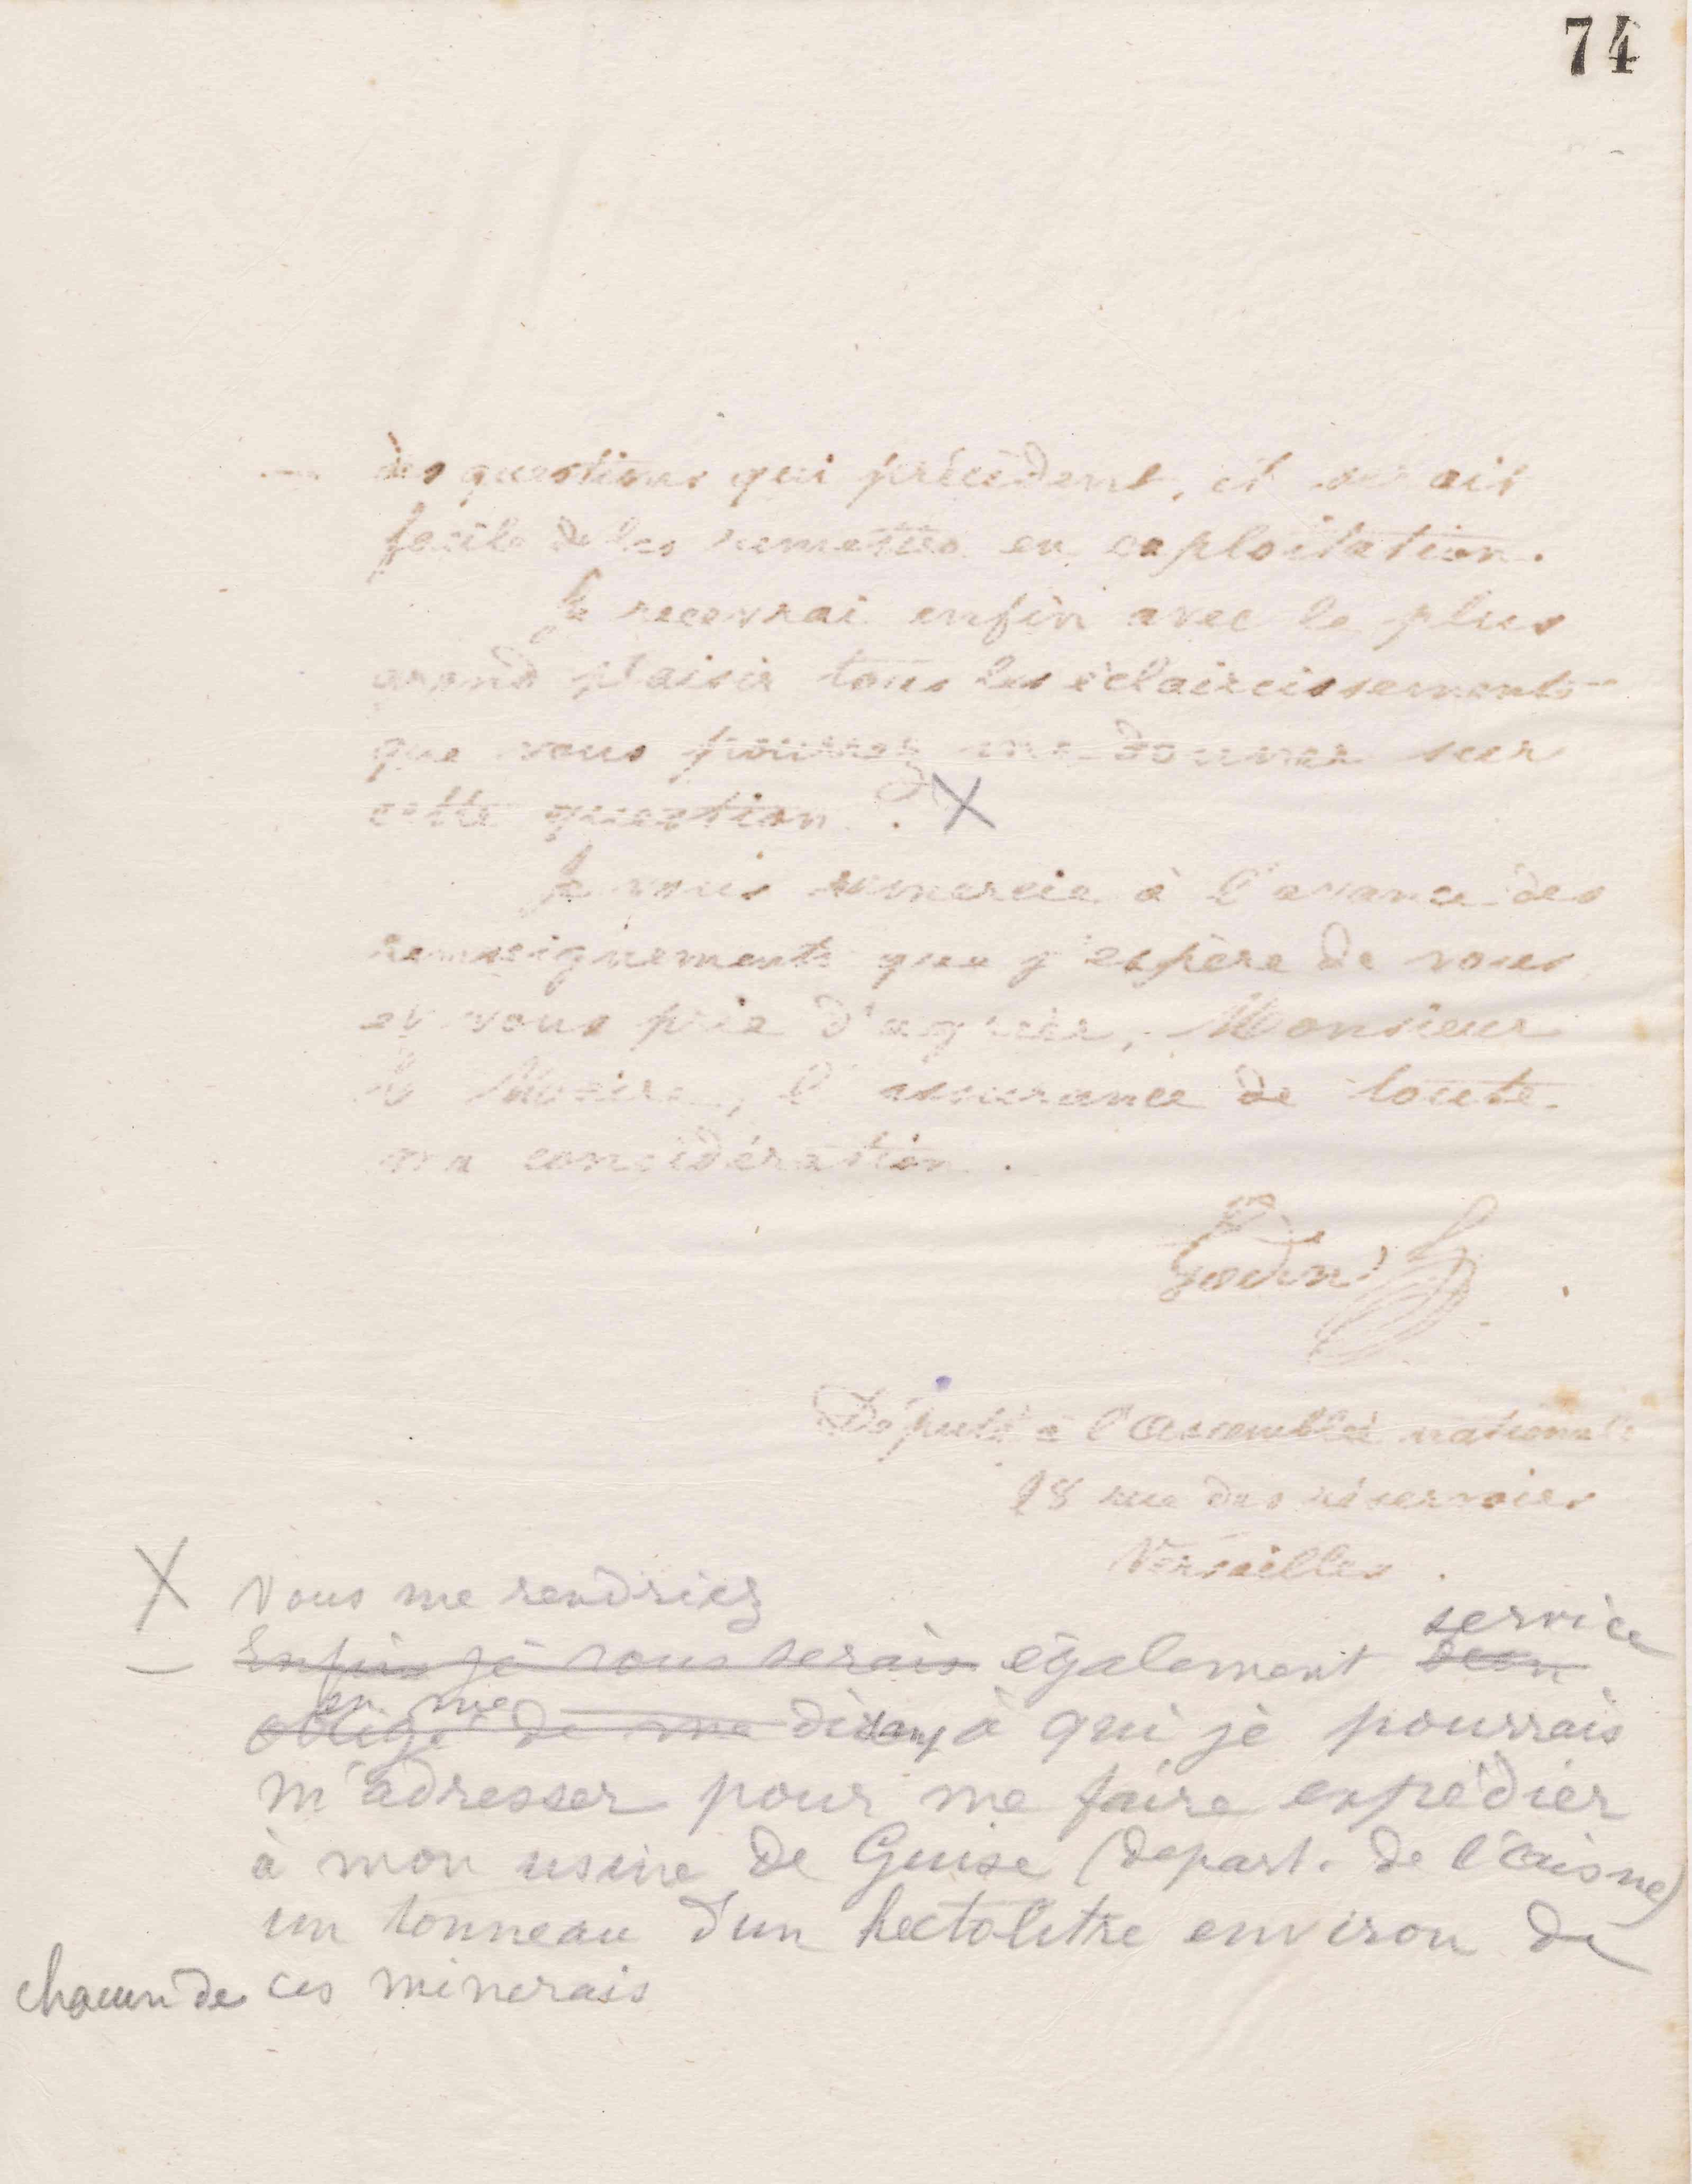 74
des questions qui précèdent, il serait
facile de les remettre en exploitation.
Je recevrai enfin avec le plus
grand plaisir tous les éclaircissements
que vous pourrez me donner sur
cette question. X
Je vous remercie à l'avance des
renseignements que j'espère de vous
et vous prie d'agréer, Monsieur
le Maire, l'assurance de toute
ma considération.
Godin
Député à l'Assemblée nationale
28 rue des réservoirs
Versailles.
X Vous me rendriez
service
— Enfin je vous serais également bien
en me
obligé de me disant à qui je pourrais
m'adresser pour me faire expédier
à mon usine de Guise (depart. de l'Aisne)
un tonneau d'un hectolitre environ de
chacun de ces minerais